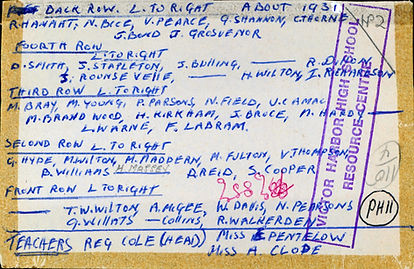 BACK ROW. L. TO RIGHT ABOUT 1931
R. HANNAFT, N. BICE, V. PEARCE, G. SHANNON, C. THORNE,
J. BOND J. GROSVENOR
FOURTH ROW
L. TO RIGHT
D. SMITH, J. STAPLETON, J. BULLING, —— R. DODD
J. ROUNSEVELLE, —— H. WILTON, I. RICHARDSON
THIRD ROW L. TO RIGHT
M. BRAY, M. YOUNG, P. PARSONS, N. FIELD, U. CAMAC
M. BRAND WOOD, H. KIRKHAM, J. BRUCE, M. HARDY
L. WARNE, F. LABRAM.
SECOND ROW L. TO RIGHT
G. HYDE, M. WILTON, M. MADDERN, M. FULTON, V. THOMPSON,
D. WILLIAMS H. MASSEY D. REID, S. COOPER
FRONT ROW L TO RIGHT
—— T. W. WILTON, A. McGEE, W. DAVIS, N. PEARSONS
G. WILLATS — COLLINS, R. WALKERDEN
TEACHERS REG COLE (HEAD) MISS E PENTELOW
MISS A. CLODE
VICTOR HARBOR HIGH SCHOOL
RESOURCE CENTRE
PH11